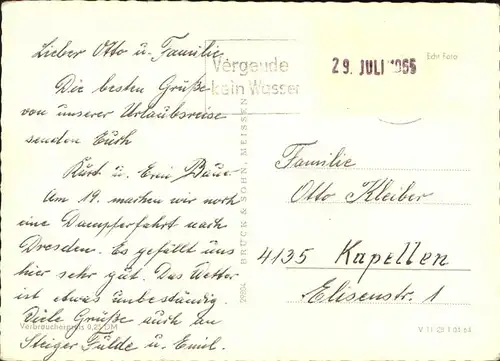 Lieber Otto u. Familie
Die besten Grüße
von unserer Urlaubsreise
senden Euch
Kurt u. Erni Bauer
Am 19. machen wir noch
eine Dampferfahrt nach
Dresden. Es gefällt uns
hier sehr gut. Das Wetter
ist etwas unbeständig.
Viele Grüße auch an
Steiger Fulde u. Emil.
Verbraucherpreis 0,25 DM
Vergeude
kein Wasser
29. JULI 1965
BRÜCK & SOHN, MEISSEN
Echt Foto
Familie
Otto Kleiber
4135 Kapellen
Elisenstr. 1